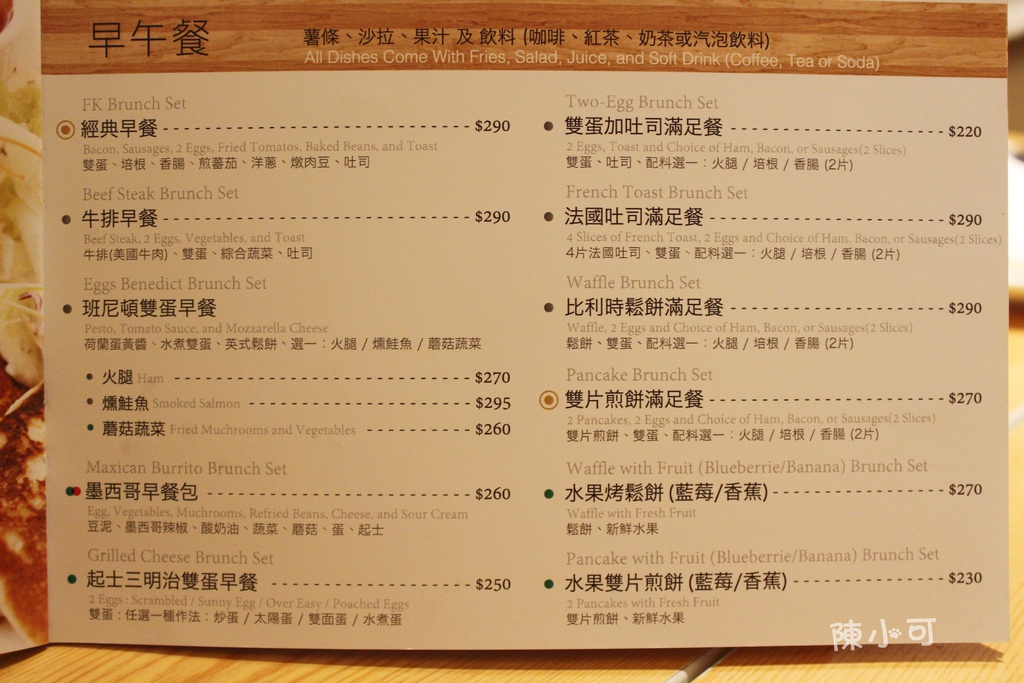 早午餐
薯條、沙拉、果汁 及 飲料 (咖啡、紅茶、奶茶或汽泡飲料)
All Dishes Come With Fries, Salad, Juice, and Soft Drink (Coffee, Tea or Soda)
FK Brunch Set
經典早餐 $290
Bacon, Sausages, 2 Eggs, Fried Tomatoes, Baked Beans, and Toast
雙蛋、培根、香腸、煎蕃茄、洋蔥、燉肉豆、吐司
Beef Steak Brunch Set
牛排早餐 $290
Beef Steak, 2 Eggs, Vegetables, and Toast
牛排(美國牛肉)、雙蛋、綜合蔬菜、吐司
Eggs Benedict Brunch Set
班尼頓雙蛋早餐
Pesto, Tomato Sauce, and Mozzarella Cheese
荷蘭蛋黃醬、水煮雙蛋、英式鬆餅、選一：火腿 / 燻鮭魚 / 蘑菇蔬菜
火腿 Ham $270
燻鮭魚 Smoked Salmon $295
蘑菇蔬菜 Fried Muchrooms and Vegetables $260
Maxican Burrito Brunch Set
墨西哥早餐包 $260
Egg, Vegetables, Muchrooms, Refried Beans, Cheese, and Sour Cream
豆泥、墨西哥辣椒、酸奶油、蔬菜、蘑菇、蛋、起士
Grilled Cheese Brunch Set
起士三明治雙蛋早餐 $250
2 Eggs : Scrambled / Sunny Egg / Over Easy / Poached Eggs
雙蛋 : 任選一種作法：炒蛋 / 太陽蛋 / 雙面蛋 / 水煮蛋
Two-Egg Brunch Set
雙蛋加吐司滿足餐 $220
2 Eggs, Toast and Choice of Ham, Bacon, or Sausages(2 Slices)
雙蛋、吐司、配料選一：火腿 / 培根 / 香腸 (2片)
French Toast Brunch Set
法國吐司滿足餐 $290
4 Slices of French Toast, 2 Eggs and Choice of Ham, Bacon, or Sausages(2 Slices)
4片法國吐司、雙蛋、配料選一：火腿 / 培根 / 香腸 (2片)
Waffle Brunch Set
比利時鬆餅滿足餐 $290
Waffle, 2 Eggs and Choice of Ham, Bacon, or Sausages(2 Slices)
鬆餅、雙蛋、配料選一：火腿 / 培根 / 香腸 (2片)
Pancake Brunch Set
雙片煎餅滿足餐 $270
2 Pancakes, 2 Eggs and Choice of Ham, Bacon, or Sausages(2 Slices)
雙片煎餅、雙蛋、配料選一：火腿 / 培根 / 香腸 (2片)
Waffle with Fruit (Blueberrie/Banana) Brunch Set
水果烤鬆餅 (藍莓/香蕉) $270
Waffle with Fresh Fruit
鬆餅、新鮮水果
Pancake with Fruit (Blueberrie/Banana) Brunch Set
水果雙片煎餅 (藍莓/香蕉) $230
2 Pancakes with Fresh Fruit
雙片煎餅、新鮮水果
陳小可